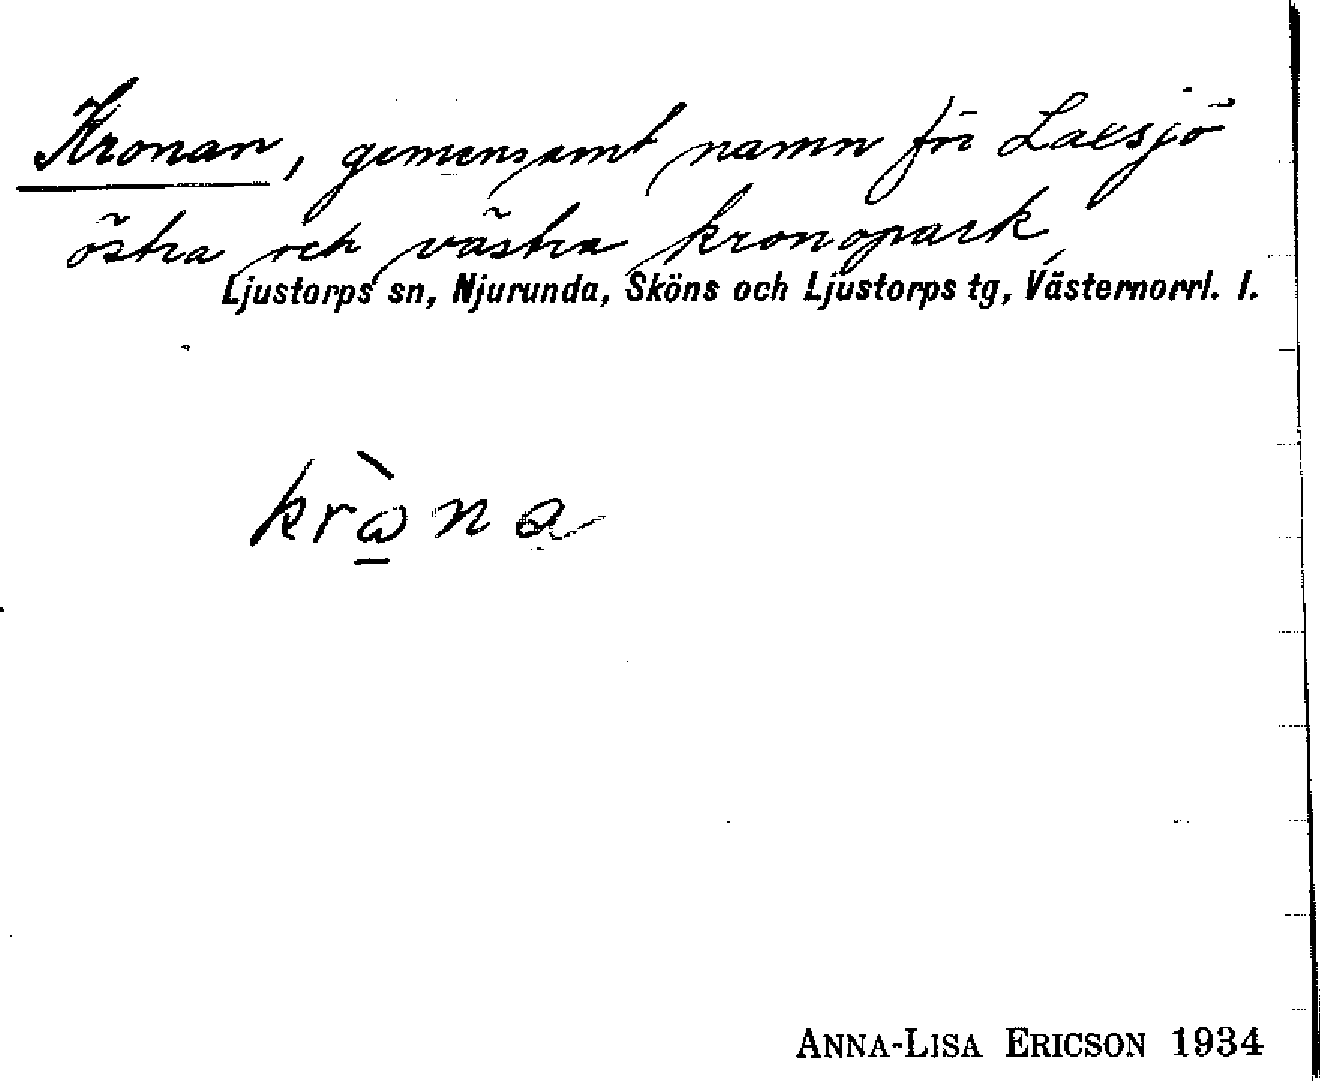 Kronan, gemensamt namn för Laxsjö
östra och västra kronopark
Ljustorps sn, Njurunda, Sköns och Ljustorps tg, Västernorrl. l.
krὼna
ANNA-LISA ERICSON 1934